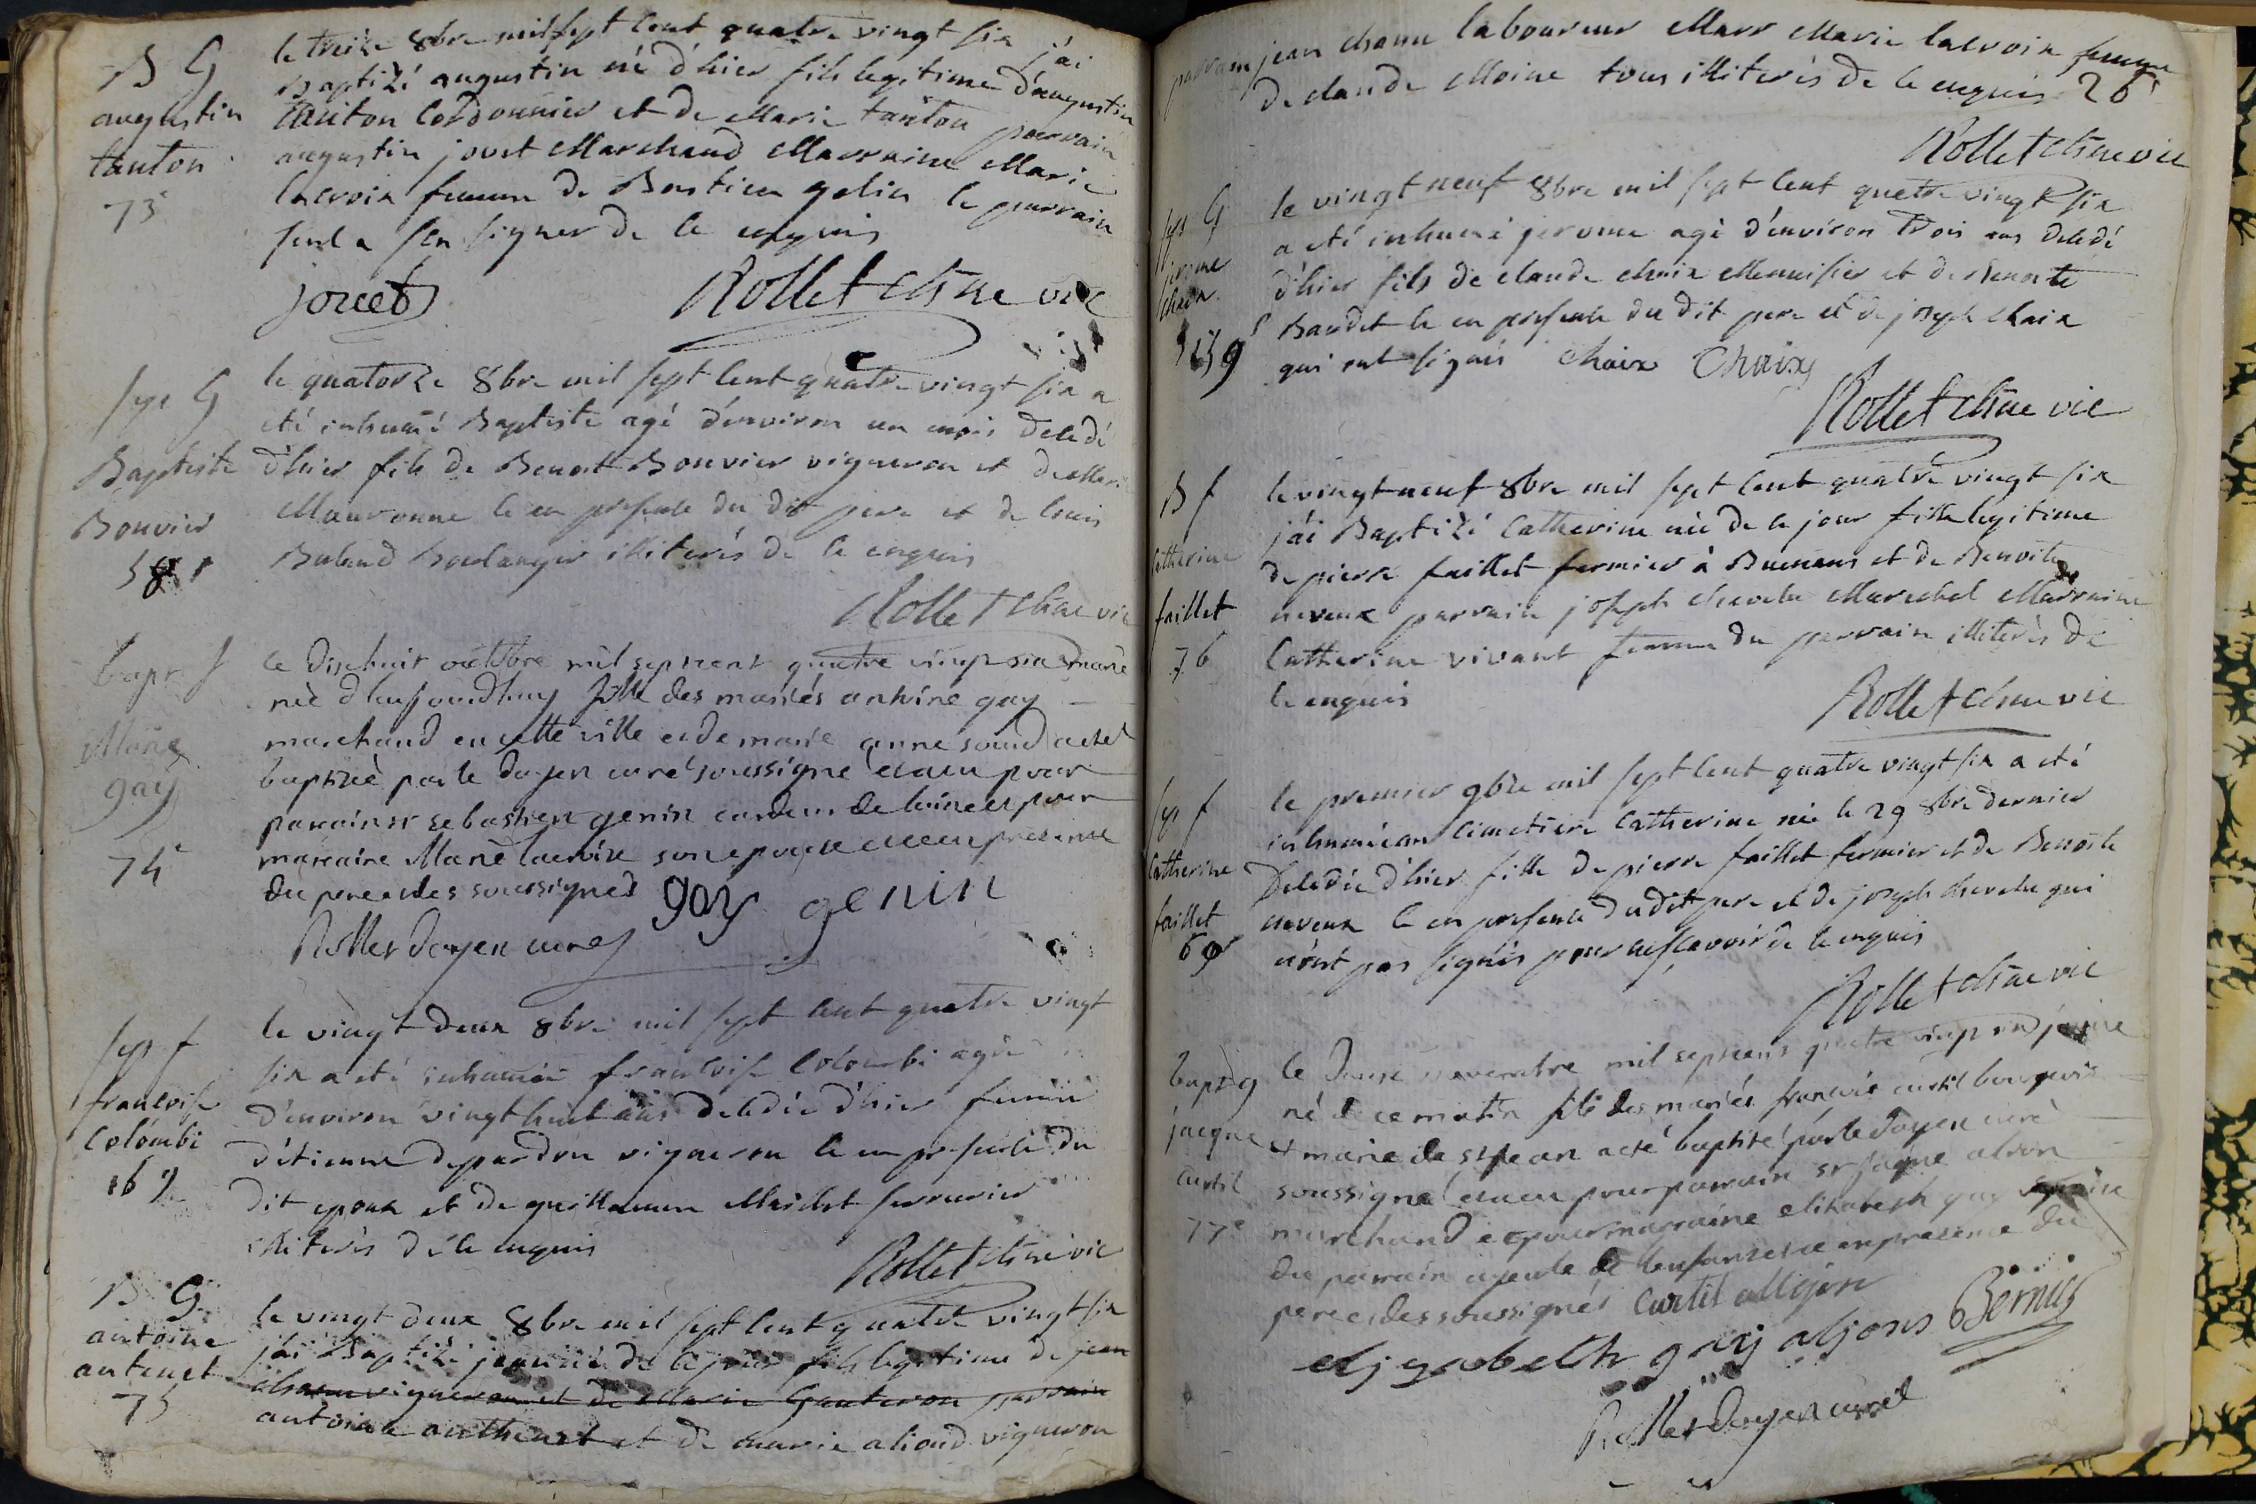 B G
augustin
tanton
73e
le treize 8bre mil sept cent quatre vingt six j'ai
Baptizé augustin né d'hier fils legitime d'augustin
tanton Cordonnier et de Marie tanton parrain
augustin jouet Marchand Marraine Marie
lacroix femme de Bastien gelin le parrain
seul a signer de ce enquis
jouet Rollet chne vic
sep G
Baptiste
Bouvier
58
le quatorze 8bre mil sept cent quatre vingt six a
eté inhumé Baptiste agé d'environ un mois decedé
d'hier fils de Benoit Bouvier vigneron et de Marie
Mauronne ce en presence du dit pere et de louis
Buland Boulanger illiterés de ce enquis
Rollet chne vic
bapt f
Marie
gay
74e
ce dixhuit octobre mil sept cent quatre vingt six marie
née d'aujourdhuy fille des mariés antoine gay
marchand en cette ville et de marie anne a eté
baptizée par le doyen curé soussigné et a eu pour
parain sr sebastien genin cardeur de laine et pour
maraine Marie lacroix son epouse ce en presence
du pere et des soussignés gay genin
Rollet doyen curé
sep f
francoise
Colombi
le vingt deux 8bre mil sept cent quatre vingt
six a eté inhumée francoise Colombi agée
d'environ vingt huit ans decedée d'hier femme
d'étienne depardon vigneron ce en presence du
dit epoux et de guillaume Maichet serrurier
illiterés de ce enquis
Rollet chne vic
B G
antoine
autenet
75
le vingt deux 8bre mil sept cent quatre vingt six
j'ai Baptizé jean né de ce jour fils legitime de jean
chanu vigneron et de Marie Gauteron parrain
antoine authenet et de marie aliond vigneron
parrain jean chanu laboureur Marr Marie lacroix femme
de claude Moine tous illiterés de ce enquis
Rollet chne vic
sep G
jerome
chaix
59
le vingt neuf 8bre mil sept cent quatre vingt six
a eté inhumé jerome agé d'environ trois ans decedé
d'hier fils de claude chaix Menuisier et de Benoite
Baudet ce en presence du dit pere et de joseph chaix
qui ont signés chaix Chaix
Rollet chne vic
B f
Catherine
faillet
76
le vingt neuf 8bre mil sept cent quatre vingt six
j'ai Baptizé Catherine née de ce jour fille legitime
de pierre faillet fermier à Buenans et de Benoite
neveux parrain joseph chevelu Marechal Marraine
Catherine vivant femme du parrain illiterés de
ce enquis
Rollet chne vic
sep f
Catherine
faillet
60
le premier 9bre mil sept cent quatre vingt six a eté
inhumée au Cimetiere Catherine née le 29 8bre dernier
decedée d'hier fille de pierre faillet fermier et de Benoite
neveux ce en presence du dit pere et de joseph chevelu qui
n'ont pas signés pour ne sçavoir de ce enquis
Rollet chne vic
bapt g
jacque
curtil
77e
le douse novembre mil sept cens quatre vingt six jacque
né de ce matin fils des mariés francois curtil bourgeois
et marie de st jean a eté baptisé par le doyen curé
soussigné et a eu pour parrain sr jaque
marchand et pour marraine elizabeth gay
du parrain ayeule de l'enfant ce en presence du
pere et des soussignés Curtil
elyzabeth gay aljons Bernis
Rollet doyen curé